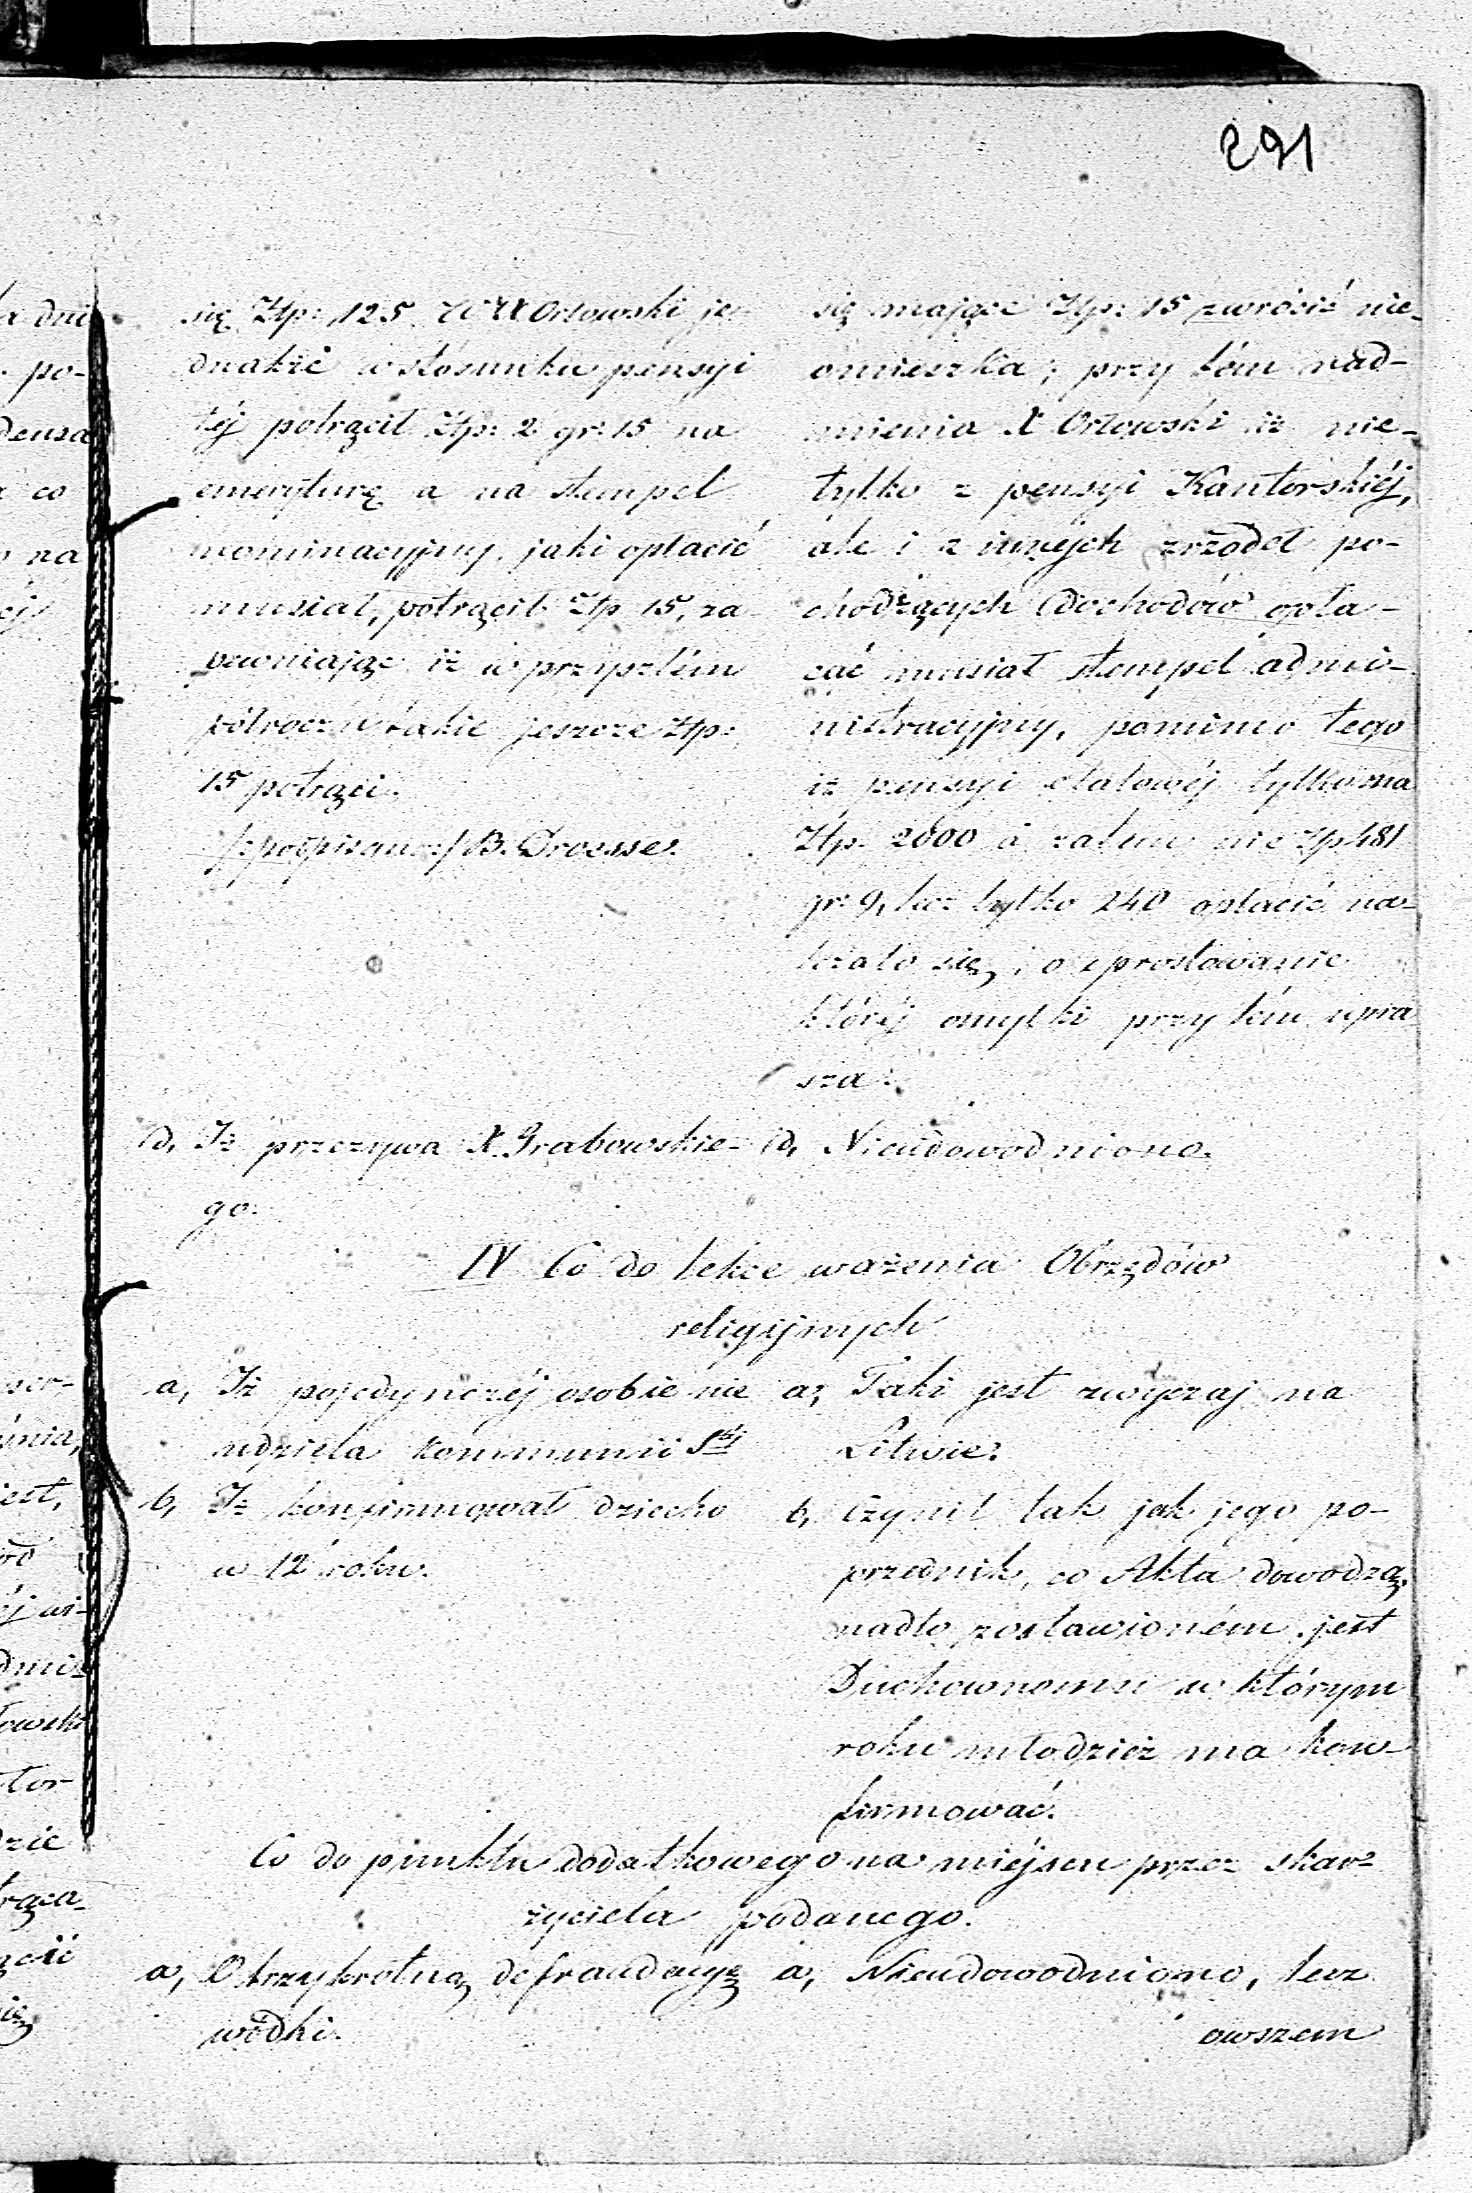 291
się Złp: 125. WX Orłowski je-
dnakże w stósunku pensyi
téj potrącił Złp: 2 gr: 15 na
emeryturę a na stempel
nominacyjny, jaki opłacić
musiał, potrącił Złp 15, za-
pewniając iż w przyszłém
półroczu takie jeszcze Złp:
15 potrąci.
/:podpisano:/ B. Droesse.
się mające Złp: 15 zwrócić nie-
omieszka; przy tém nad-
mienia X Orłowski iż nie-
tylko z pensyi Kantorskiéj,
ale i z innych zrzódeł po-
chodzących dochodów opła-
cać musiał stempel admi-
nistracyjny, pomimo tego
iż pensyi etatowéj tylko ma
Złp. 2000 a zatem nie Złp 481
gr: 9, lecz tylko 240 opłacić na-
leżało się, o sprostowanie
któréj omyłki przytém upra
sza.
d, Iż przezywa X. Grabowskie-
go.
d, Nieudowodniono.
IV Co do lekce ważenia Obrzędów
religijnych
a, Iż pojedynczéj osobie nie
udziela kommunii Stéj
a, Taki jest zwyczaj na
Litwie.
b, Iż konfirmował dziecko
w 12 roku.
b, Czynił tak jak jego po-
przednik, co Akta dowodzą,
nadto zostawioném jest
Duchownemu w którym
roku młodzież ma kon-
firmować.
Co do punktu dodatkowego na miéjscu przez skar-
życiela podanego.
a, O trzykrotną defraudacyę
wódki.
a, Nieudowodniono, lecz
owszem